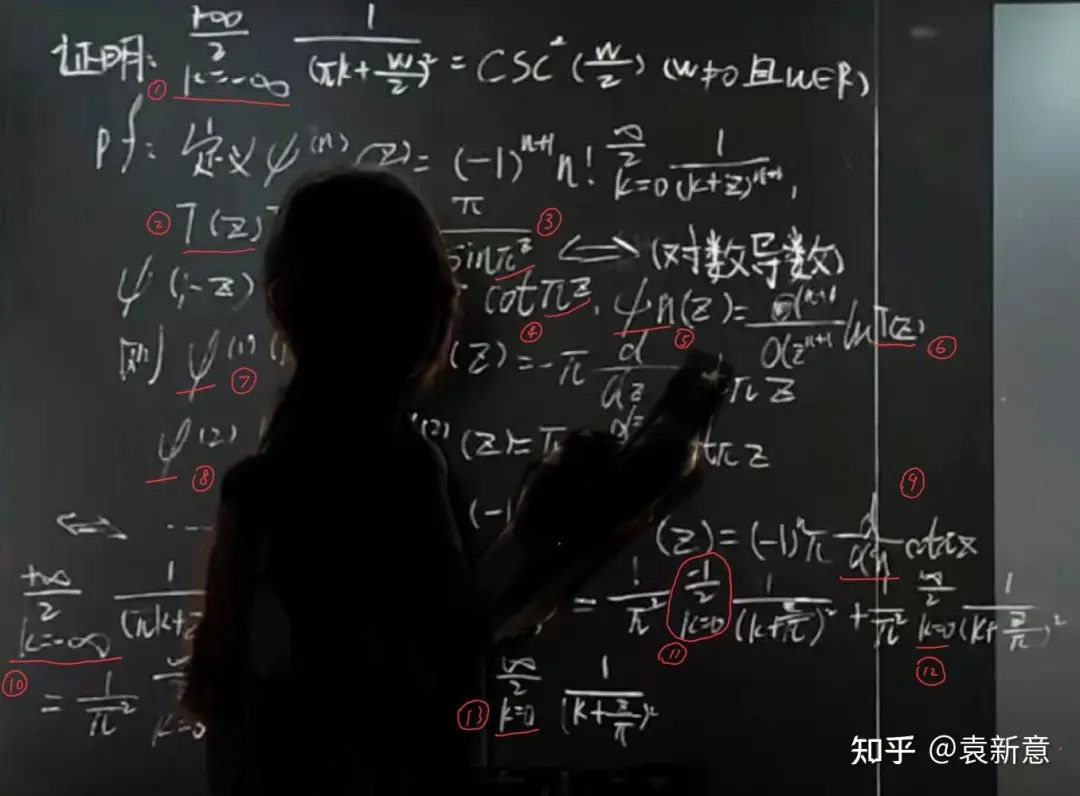 证明: +∞ 2 k=-∞ 1/(πk+w/2)² = CSC²(w/2) (w≠0且w∈R)
①
pf: 定义 ψ⁽ⁿ⁾(z) = (-1)ⁿ⁺¹ n! ∞ 2 k=0 1/(k+z)ⁿ⁺¹,
② Γ(z) π/sinπz ③ ⟺ (对数导数)
ψ(1-z) cotπz, ④ ψn(z) = ⑤ d⁽ⁿ⁺¹⁾/dzⁿ⁺¹ ln Γ(z) ⑥
则 ψ⁽¹⁾ ⑦ (z) = -π d/dz πz
ψ⁽²⁾ ⑧ ⁽²⁾(z) = π πz
⟺ … (-1) (z) = (-1)ⁿπ d/dn cotπz ⑨
+∞ 2 k=-∞ 1/(πk+z = 1/π² -1 2 k=0 1/(k+z/π)² + 1/π² ∞ 2 k=0 1/(k+z/π)²
⑩ ⑪ ⑫
= 1/π² ∞ k=0 ⑬ ∞ 2 k=0 1/(k+z/π)²
知乎 @袁新意